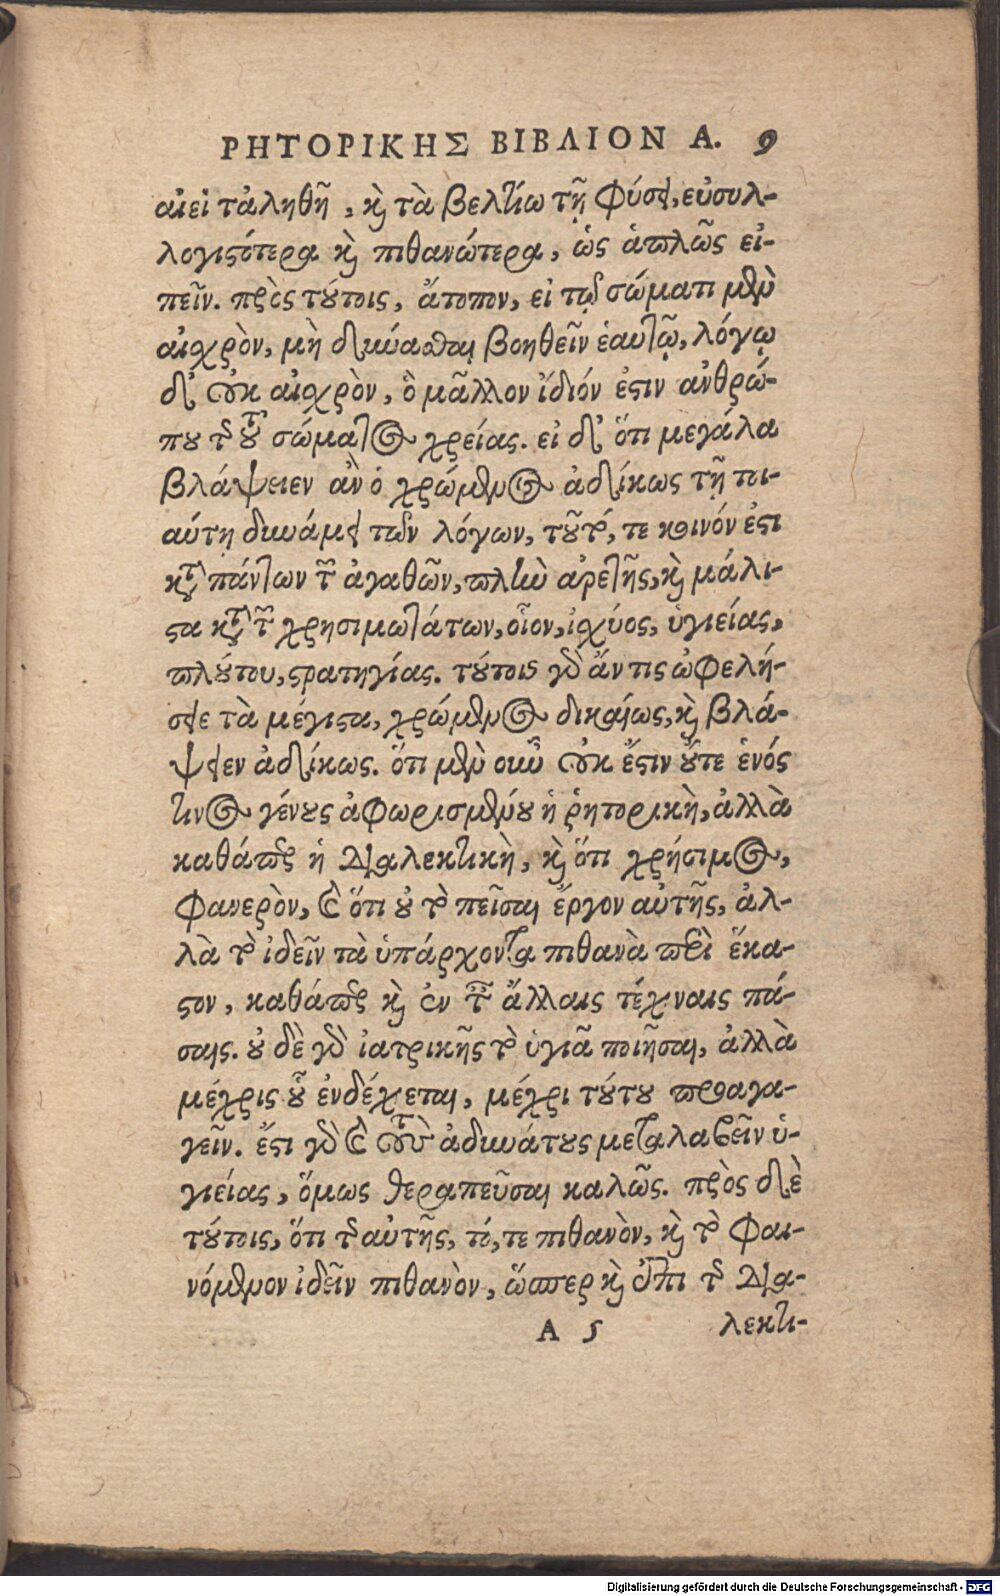 ΡΗΤΟΡΙΚΗΣ ΒΙΒΛΙΟΝ Α. 9
αἰεὶ τἀληθῆ, καὶ τὰ βελτίω τῇ φύσει, εὐσυλ-
λογιςότερα καὶ πιθανώτερα, ὡς ἁπλῶς εἰ-
πεῖν. πρὸς τούτοις, ἄτοπον, εἰ τῷ σώματι μὲν
αἰσχρὸν, μὴ δύνασθαι βοηθεῖν ἑαυτῷ, λόγῳ
δ' οὐκ αἰσχρὸν, ὃ μᾶλλον ἴδιόν ἐςιν ἀνθρώ-
που τῆς τοῦ σώματος χρείας. εἰ δ' ὅτι μεγάλα
βλάψειεν ἂν ὁ χρώμενος ἀδίκως τῇ τοι-
αύτῃ δυνάμει τῶν λόγων, τοῦτό, τε κοινόν ἐςι
κατὰ πάντων τῶν ἀγαθῶν, πλὴν ἀρετῆς, καὶ μάλι-
ςα κατὰ τῶν χρησιμωτάτων, οἷον, ἰσχύος, ὑγιείας,
πλούτου, ςρατηγίας. τούτοις γὰρ ἄν τις ὠφελή-
σειε τὰ μέγιςα, χρώμενος δικαίως, καὶ βλά-
ψειεν ἀδίκως. ὅτι μὲν οὖν οὐκ ἔςιν οὔτε ἑνός
τινος γένους ἀφωρισμένου ἡ ῥητορικὴ, ἀλλὰ
καθάπερ ἡ διαλεκτικὴ, καὶ ὅτι χρήσιμος,
φανερὸν, καὶ ὅτι οὐ τὸ πεῖσαι ἔργον αὐτῆς, ἀλ-
λὰ τὸ ἰδεῖν τὰ ὑπάρχοντα πιθανὰ περὶ ἕκα-
ςον, καθάπερ καὶ ἐν ταῖς ἄλλαις τέχναις πά-
σαις. οὐ δὲ γὰρ ἰατρικῆς τὸ ὑγιᾶ ποιῆσαι, ἀλλὰ
μέχρις οὗ ἐνδέχεται, μέχρι τούτου προαγα-
γεῖν. ἔςι γὰρ καὶ τοὺς ἀδυνάτους μεταλαβεῖν ὑ-
γιείας, ὅμως θεραπεῦσαι καλῶς. πρὸς δὲ
τούτοις, ὅτι τῆς αὐτῆς, τό, τε πιθανὸν, καὶ τὸ φαι-
νόμενον ἰδεῖν πιθανὸν, ὥσπερ καὶ ἐπὶ τῆς δια-
Α 5 λεκτι-
Digitalisierung gefördert durch die Deutsche Forschungsgemeinschaft - DFG